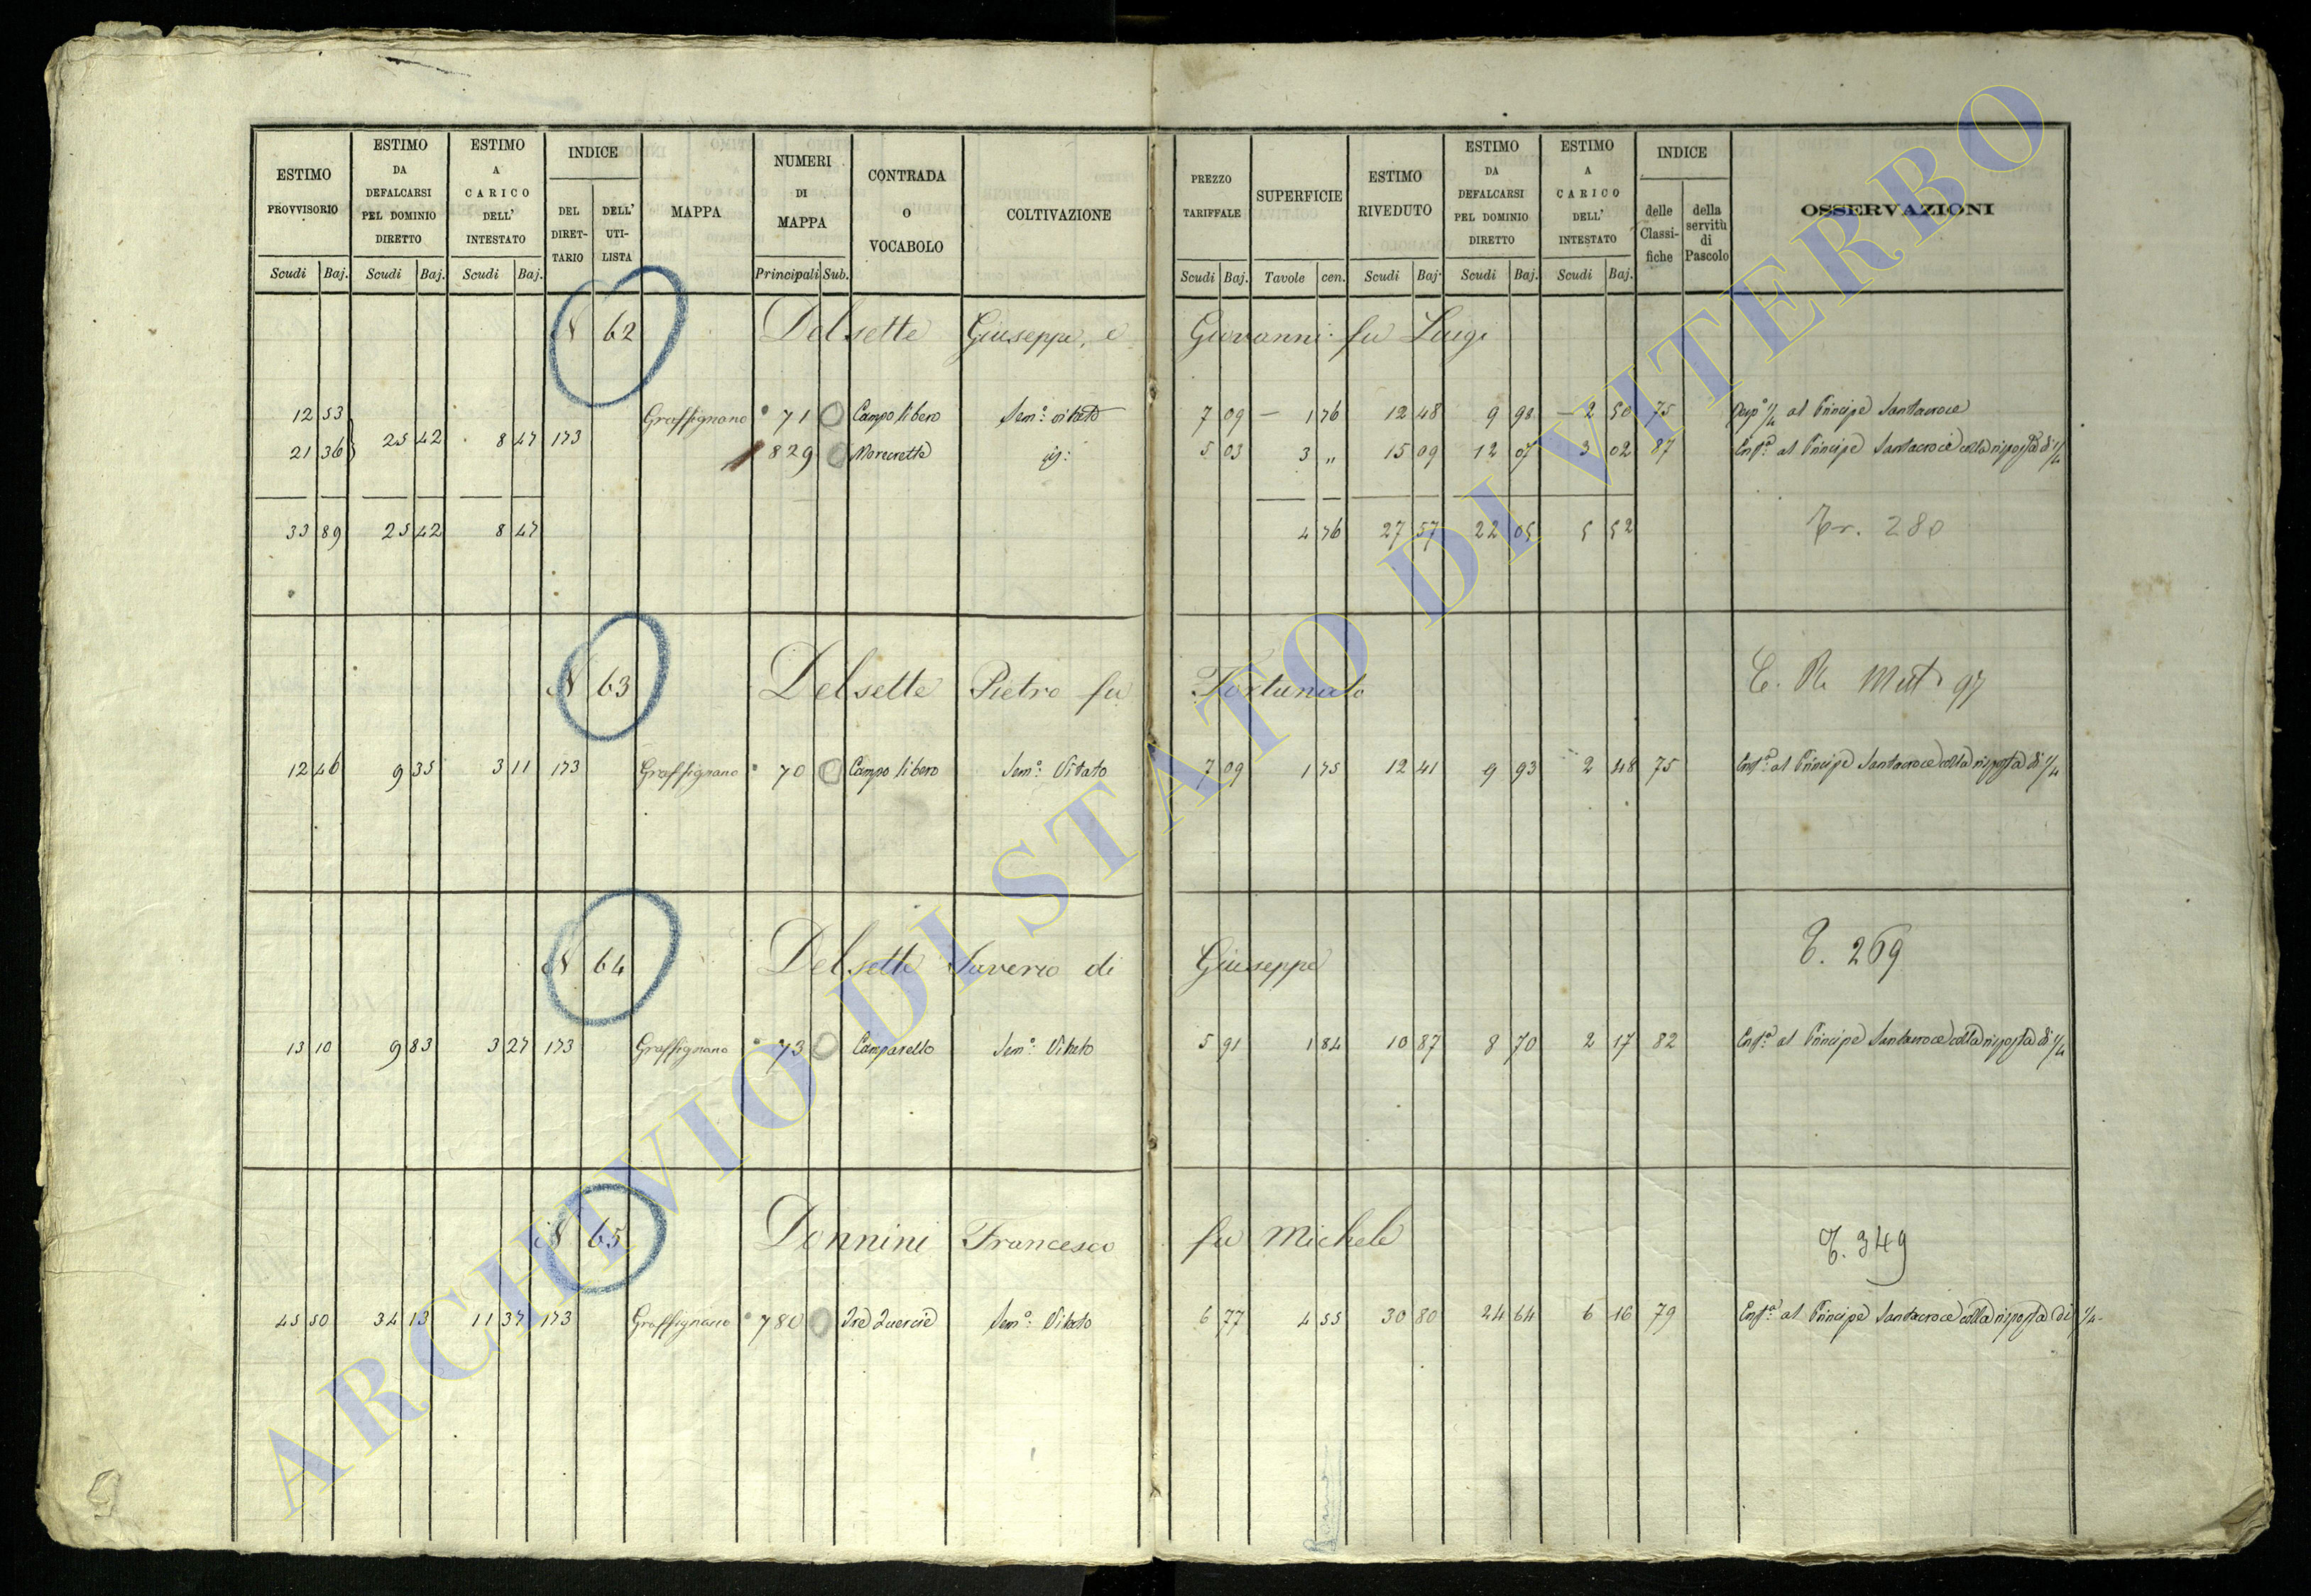 ESTIMO PROVVISORIO
ESTIMO DA DEFALCARSI PEL DOMINIO DIRETTO
ESTIMO A CARICO DELL' INTESTATO
INDICE
DEL DIRET-TARIO
DELL' UTI-LISTA
MAPPA
NUMERI DI MAPPA
CONTRADA O VOCABOLO
COLTIVAZIONE
PREZZO TARIFFALE
SUPERFICIE
ESTIMO RIVEDUTO
ESTIMO DA DEFALCARSI PEL DOMINIO DIRETTO
ESTIMO A CARICO DELL' INTESTATO
INDICE
delle Classi-fiche
della servitù di Pascolo
OSSERVAZIONI
Scudi Baj. Scudi Baj. Scudi Baj. Principali Sub. Scudi Baj. Tavole cen. Scudi Baj. Scudi Baj. Scudi Baj.
N 62 Delsette Giuseppe, e Giovanni fu Luigi
12 53 Graffignano 71 0 Campo libero Sem.o vitato 7 09 1 76 12 48 9 98 2 50 75 1/4 al Principe Santacroce
21 36 25 42 8 47 173 829 0 Morecrette 5 03 3 „ 15 09 12 07 3 02 87 Enf.a al Principe Santacroce colla risposta di 1/4
33 89 25 42 8 47 4 76 27 57 22 05 5 52 Tr. 280
N 63 Delsette Pietro fu Fortunato Mut 97
12 46 9 35 3 11 173 Graffignano 70 0 Campo libero Sem.o Vitato 7 09 1 75 12 41 9 93 2 48 75 Enf.a al Principe Santacroce colla risposta di 1/4
N 64 Delsette Saverio di Giuseppe T. 269
13 10 9 83 3 27 173 Graffignano 73 0 Camparello Sem.o Vitato 5 91 1 84 10 87 8 70 2 17 82 Enf.a al Principe Santacroce colla risposta di 1/4
N 65 Donnini Francesco fu Michele T. 349
45 50 34 13 11 37 173 Graffignano 780 0 Tre Quercie Sem.o Vitato 6 77 4 55 30 80 24 64 6 16 79 Enf.a al Principe Santacroce colla risposta di 1/4
ARCHIVIO DI STATO DI VITERBO